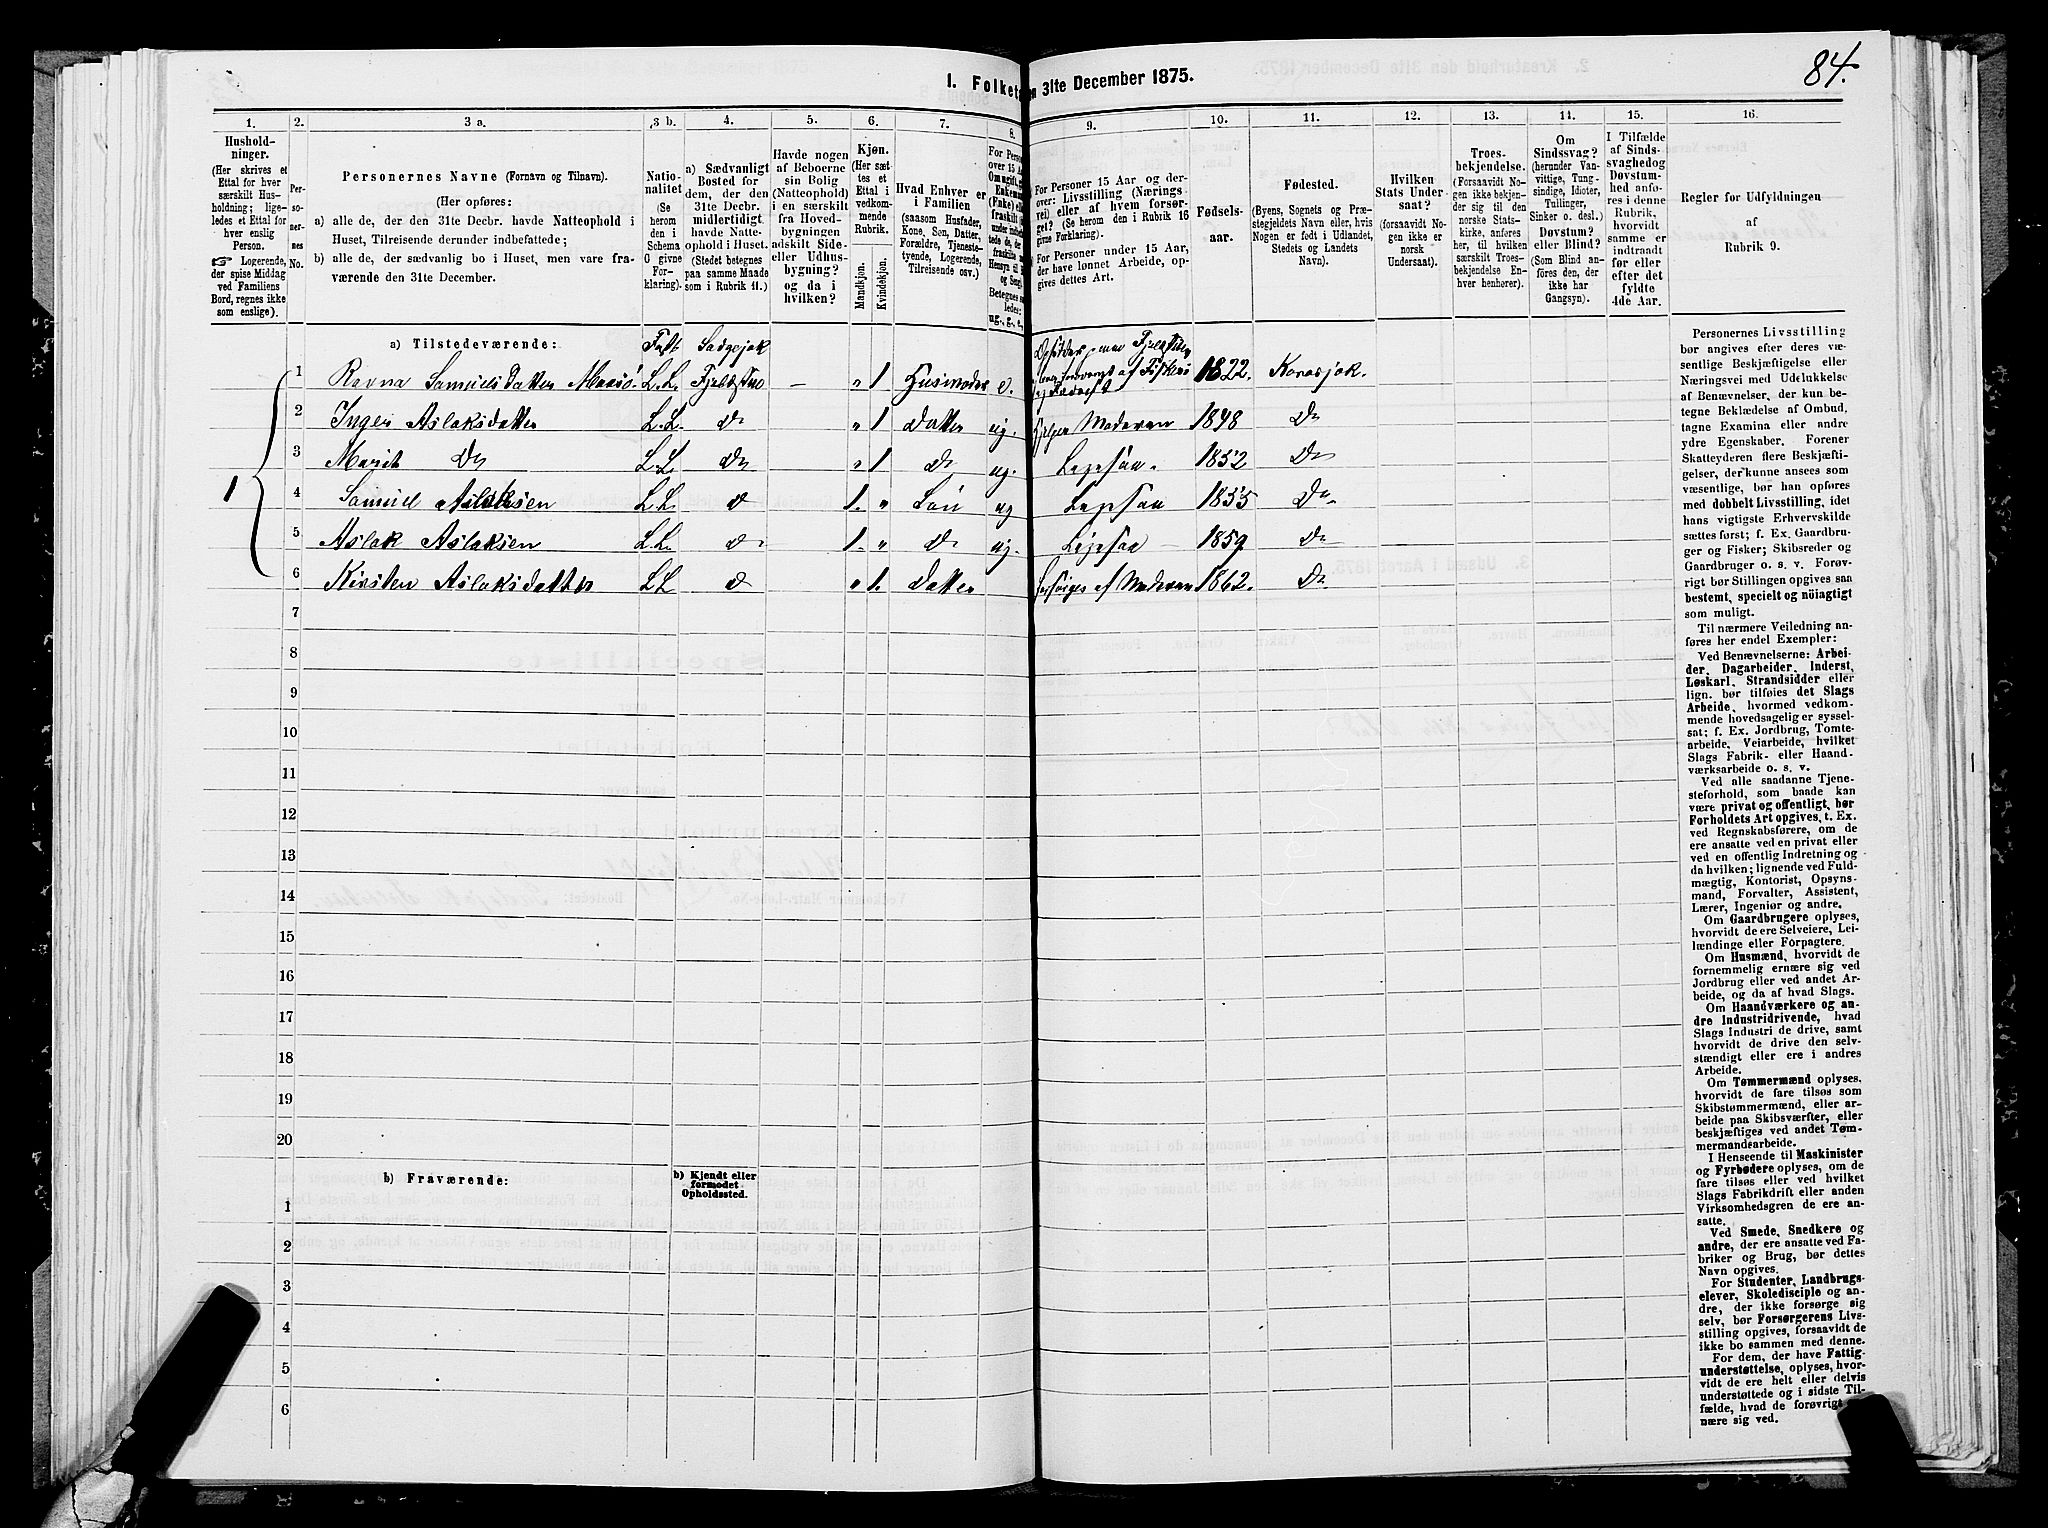 84.
I. Folketa
en 31te December 1875.
1. 2. 3 a. 3 b. 4. 5. 6. 7. 8. 9. 10. 11. 12. 13. 14. 15. 16.
Hushold-
ninger.
(Her skrives et
Ettal for hver
særskilt Hus-
holdning; lige-
ledes et Ettal for
hver enslig
Person.
☞ Logerende,
der spise Middag
ved Familiens
Bord, regnes ikke
som enslige).
Per-
so-
ner-
nes
No.
Personernes Navne (Fornavn og Tilnavn).
(Her opføres:
a) alle de, der den 31te Decbr. havde Natteophold i
Huset, Tilreisende derunder indbefattede;
b) alle de, der sædvanlig bo i Huset, men vare fra-
værende den 31te December.
Natio-
nalitet
(Se
herom
den i
Schema
G givne
For-
klaring).
a) Sædvanligt
Bosted for
dem, der den
31te Decbr.
midlertidigt
havde Natte-
ophold i Huset.
(Stedet betegnes
paa samme Maade
som i Rubrik 11.)
Havde nogen
af Beboerne
sin Bolig
(Natteophold)
i en særskilt
fra Hoved-
bygningen
adskilt Side-
eller Udhus-
bygning?
og da i
hvilken?
Kjøn.
(Her sæt-
tes et
Ettal i
vedkom-
mende
Rubrik.
Mandkjøn.
Kvindekjøn.
Hvad Enhver er
i Familien
(saasom Husfader,
Kone, Søn, Datter,
Forældre, Tjeneste-
tyende, Logerende,
Tilreisende osv.)
For Person
over 15 Aa
Om ugift, g
Enkema
(Enke) elle
fraskilt
Betegnes s
ledes:
ug., g., e.,
For Personer 15 Aar og der-
over: Livsstilling (Nærings-
vei) eller af hvem forsør-
get? (Se herom den i Rubrik 16
givne Forklaring).
For Personer under 15 Aar,
der have lønnet Arbeide, op-
gives dettes Art.
Fødsels-
aar.
Fødested.
(Byens, Sognets og Præ-
stegjeldets Navn eller, hvis
Nogen er født i Udlandet,
Stedets og Landets
Navn).
Hvilken
Stats Under-
saat?
(forsaavidt No-
gen ikke er
norsk
Undersaat).
Troes-
bekjendelse.
(Forsaavidt No-
gen ikke bekjen-
der sig til den
norske Stats-
kirke, anføres
her, til hvilken
særskilt Troes-
bekjendelse En-
hver henhører).
Om
Sindssvag?
(herunder Van-
vittige, Tung-
sindige, Idioter,
Tullinger,
Sinker o. desl.)
Døvstum?
eller Blind?
(Som Blind an-
føres den, der
ikke har
Gangsyn).
I Tilfælde
af Sinds-
svaghedog
Døvstum-
hed anfø-
res i denne
Rubrik,
hvorvidt
samme er
indtraadt
før eller
efter det
fyldte
4de Aar.
Regler for Udfyldningen
af
Rubrik 9.
a) Tilstedeværende: Fast
1 Ravna Samuels Datter L.L. – „ 1 Husmoder e. 1822. Karasjok.
2 Inger Aslaksdatter L.L. D „ 1 Datter ug. Hjelper Moderen 1848 Do
3 Marit Do L.L. Do „ 1 D ug. 1852 Do
1
4 Samuel Aslaksen L L. D 1. „ Søn ug 1855 Do
5 Aslak Aslaksen L L. D 1. „ D ug. 1859 Do
6 Kirsten Aslaksdatter L L D „ 1. Datter Forsørges af Moderen 1862. Do
7
8
9
10
11
12
13
14
15
16
17
18
19
20
b) Fraværende:
b) Kjendt eller
formodet
Opholdssted.
1
2
3
4
5
6
Personernes Livsstilling
bør angives efter deres væ-
sentlige Beskjæftigelse eller
Næringsvei med Udelukkelse
af Benævnelser, der kun be-
tegne Beklædelse af Ombud,
tagne Examina eller andre
ydre Egenskaber. Forener
Skatteyderen flere Beskjæfti-
gelser, der kunne ansees som
væsentlige, bør han opføres
med dobbelt Livsstilling, idet
hans vigtigste Erhvervskilde
sættes først; f. Ex. Gaardbru-
ger og Fisker; Skibsreder og
Gaardbruger o. s. v. Forøv-
rigt bør Stillingen opgives saa
bestemt, specielt og nöiagtigt
som muligt.
Til nærmere Veiledning an-
føres her endel Exempler:
Ved Benævnelserne: Arbei-
der, Dagarbeider, Inderst,
Løskarl, Strandsidder eller
lign. bør tilføies det Slags
Arbeide, hvormed vedkom-
mende hovedsagelig er syssel-
sat; f. Ex. Jordbrug, Tomte-
arbeide, Veiarbeide, hvilket
Slags Fabrik- eller Haand-
værksarbeide o. s. v.
Ved alle saadanne Tjene-
steforhold, som baade kan
være privat og offentligt, bør
Forholdets Art opgives, t. Ex.
ved Regnskabsførere, om de
ere ansatte ved en privat eller
ved en offentlig Indretning og
da hvilken; lignende ved Fuld-
mægtig, Kontorist, Opsyns-
mand, Forvalter, Assistent,
Lærer, Ingeniør og andre.
Om Gaardbrugere oplyses,
hvorvidt de ere Selveiere, Lei-
lændinge eller Forpagtere.
Om Husmænd, hvorvidt de
fornemmelig ernære sig ved
Jordbrug eller ved andet Ar-
beide, og da af hvad Slags.
Om Haandværkere og an-
dre Industridrivende, hvad
Slags Industri de drive, samt
hvorvidt de drive den selv-
stændigt eller ere i andres
Arbeide.
Om Tømmermænd oplyses,
hvorvidt de fare tilsøs som
Skibstømmermænd, eller ar-
beide paa Skibsværfter, eller
beskjæftiges ved andet Tøm-
mermandsarbeide.
I Henseende til Maskinister
og Fyrbødere oplyses, om de
fare tilsøs eller ved hvilket
Slags Fabrikdrift eller anden
Virksomhedsgren de ere an-
satte.
Ved Smede, Snedkere og
andre, der ere ansatte ved Fa-
briker og Brug, bør dettes
Navn opgives.
For Studenter, Landbrugs-
elever, Skoledisciple og an-
dre, der ikke forsørge sig
selv, bør Forsørgerens Livs-
stilling opgives, forsaavidt de
ikke bo sammen med denne.
For dem, der have Fattig-
understøttelse, oplyses, hvor-
vidt de ere helt eller delvis
understøttede og i sidste Til-
fælde, hvad de forøvrigt er-
nære sig ved.